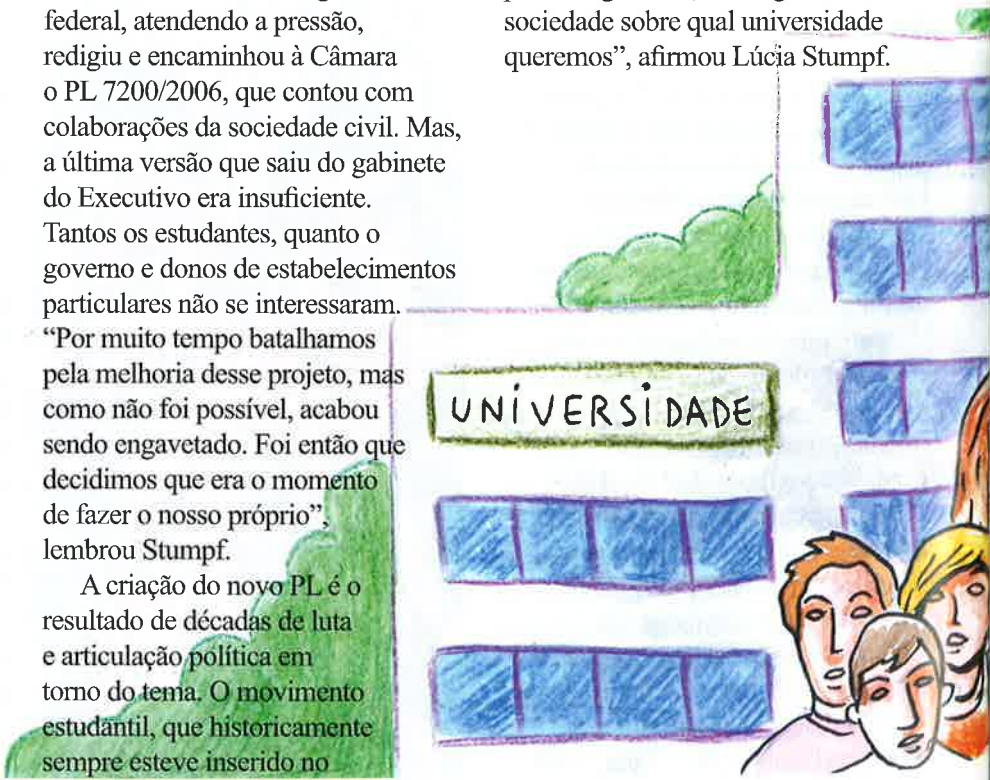 federal, atendendo a pressão,
redigiu e encaminhou à Câmara
o PL 7200/2006, que contou com
colaborações da sociedade civil. Mas,
a última versão que saiu do gabinete
do Executivo era insuficiente.
Tantos os estudantes, quanto o
governo e donos de estabelecimentos
particulares não se interessaram.
“Por muito tempo batalhamos
pela melhoria desse projeto, mas
como não foi possível, acabou
sendo engavetado. Foi então que
decidimos que era o momento
de fazer o nosso próprio”,
lembrou Stumpf.
A criação do novo PL é o
resultado de décadas de luta
e articulação política em
torno do tema. O movimento
estudantil, que historicamente
sempre esteve inserido no
sociedade sobre qual universidade
queremos”, afirmou Lúcia Stumpf.
UNiVERSiDADE